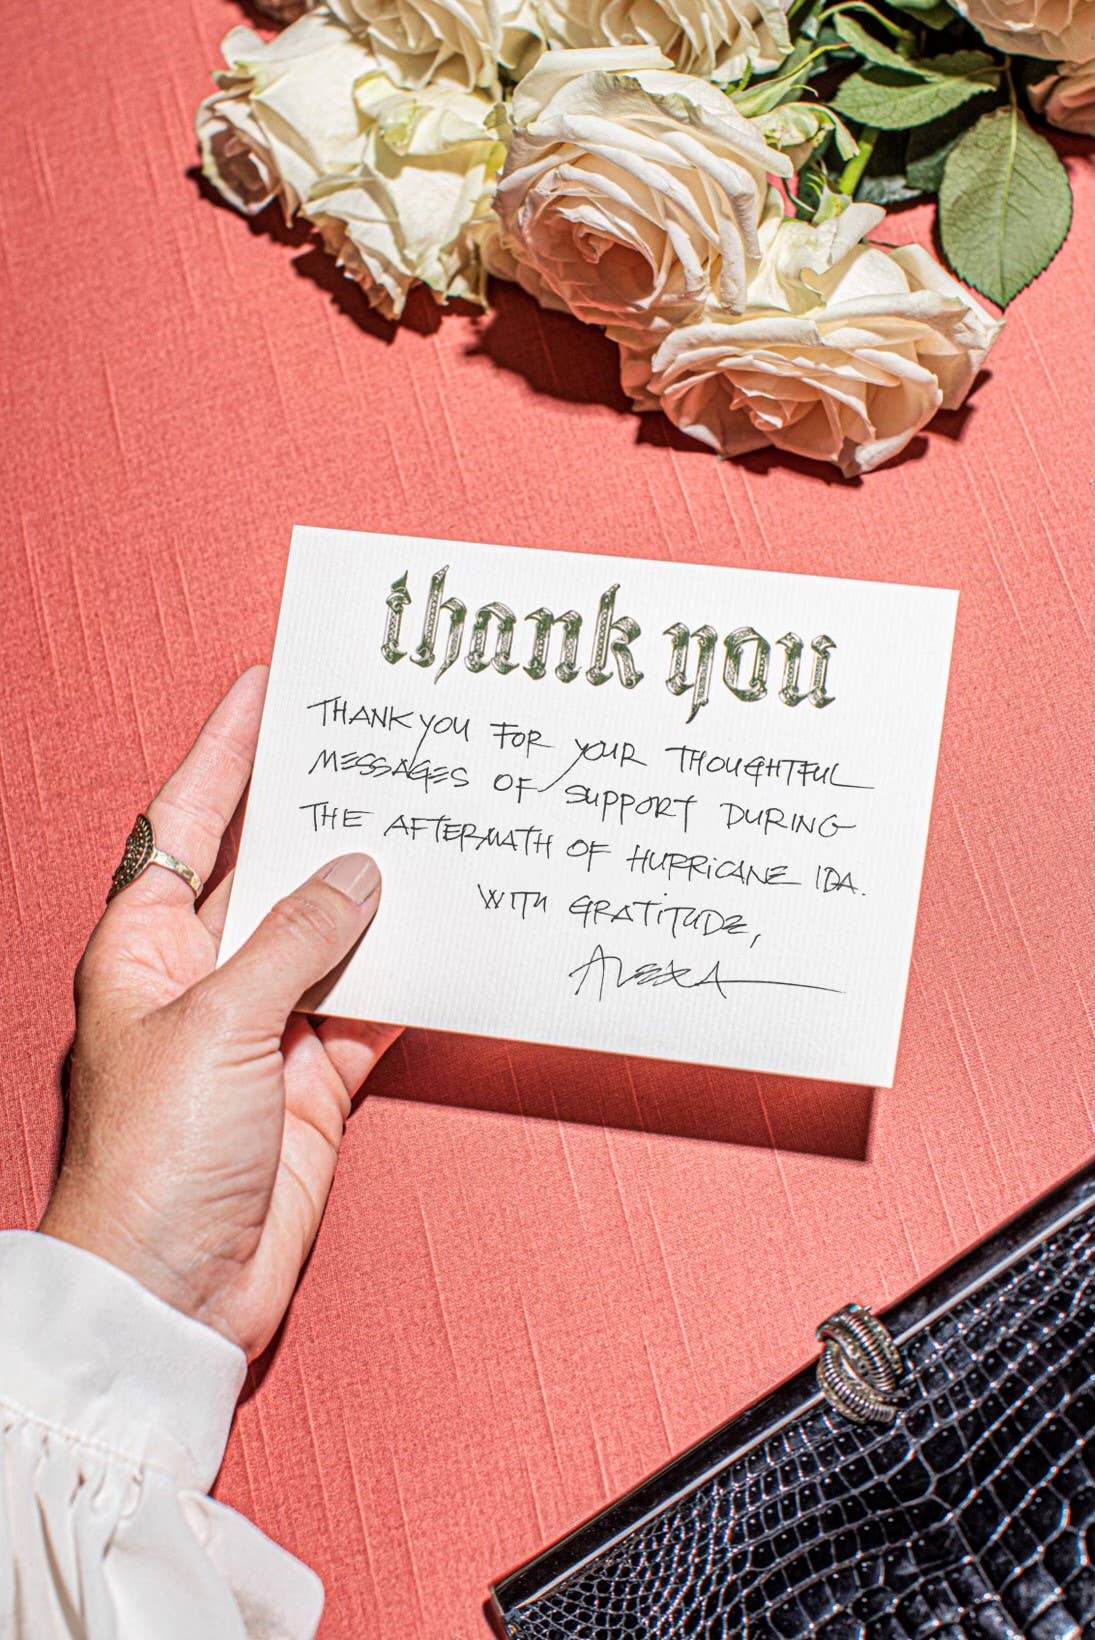 thank you
THANK YOU FOR YOUR THOUGHTFUL
MESSAGES OF SUPPORT DURING
THE AFTERMATH OF HURRICANE IDA.
WITH GRATITUDE,
ALEXA